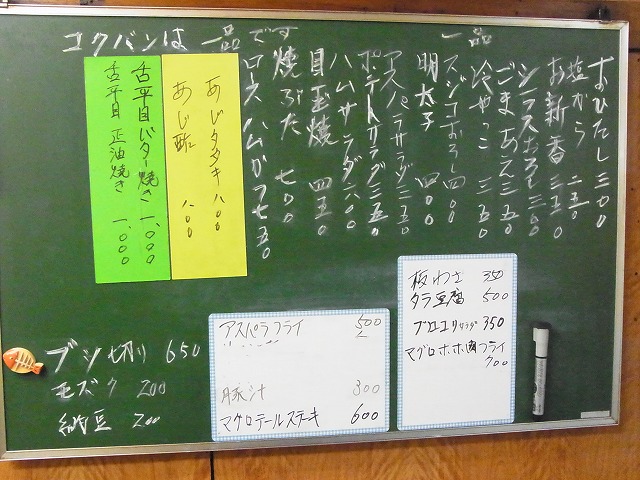 コクバンは一品です
一品
おひたし 三〇〇
塩から 二五〇
お新香 三五〇
シラスおろし 三〇〇
ごまあえ 三五〇
冷やっこ 三五〇
スジコおろし 四〇〇
明太子 四〇〇
アスパラサラダ 三五〇
ポテトサラダ 三五〇
ハムサラダ 六〇〇
目玉焼 四五〇
焼ぶた 七〇〇
ロースハムカツ 七五〇
あじタタキ 八〇〇
あじ酢 八〇〇
舌平目バター焼き 一、〇〇〇
舌平目 正油焼き 一、〇〇〇
ブツ切り 650
モズク 200
納豆 200
アスパラフライ 500
豚汁 300
マグロテールステーキ 600
板わさ 350
タラ豆腐 500
ブロッコリサラダ 350
マグロホホ肉フライ
700